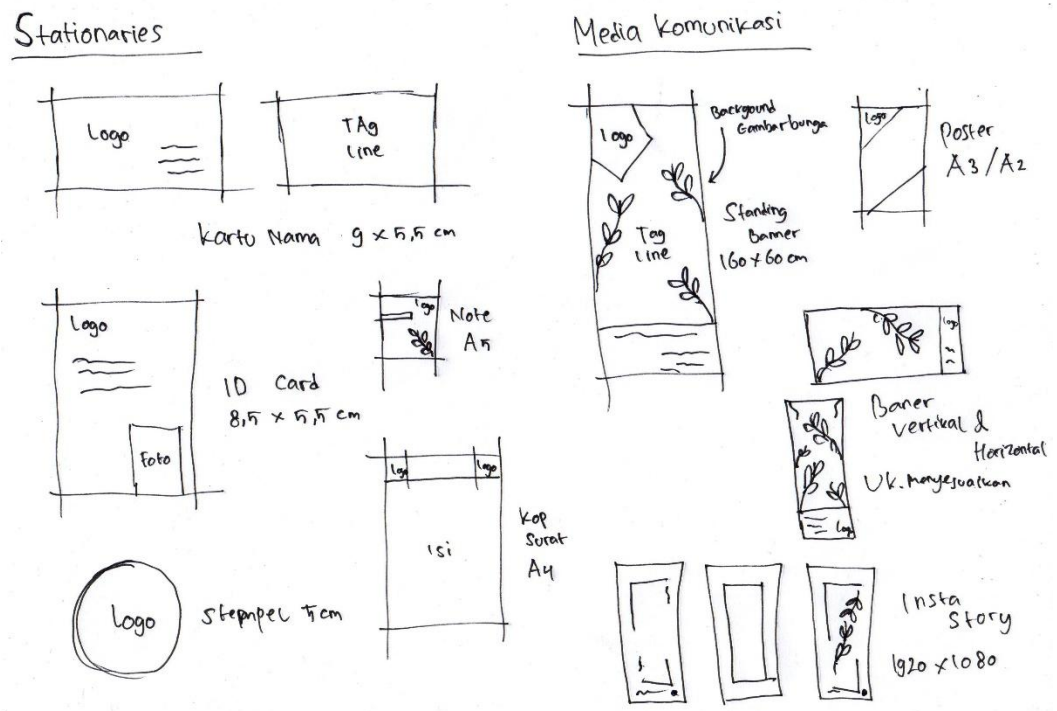 Stationaries
Logo
TAg
line
Kartu Nama 9 x 5,5 cm
Logo
Foto
ID Card
8,5 x 5,5 cm
logo
Note
A5
logo
logo
isi
Kop
Surat
A4
Logo
Stempel 5 cm
Media Komunikasi
logo
Tag
line
Backgound
Gambar bunga
Standing
Banner
160 x 60 cm
logo
Poster
A3/A2
logo
Baner
Vertikal &
Horizontal
Uk. Menyesuaikan
Logo
Insta
Story
1920 x 1080